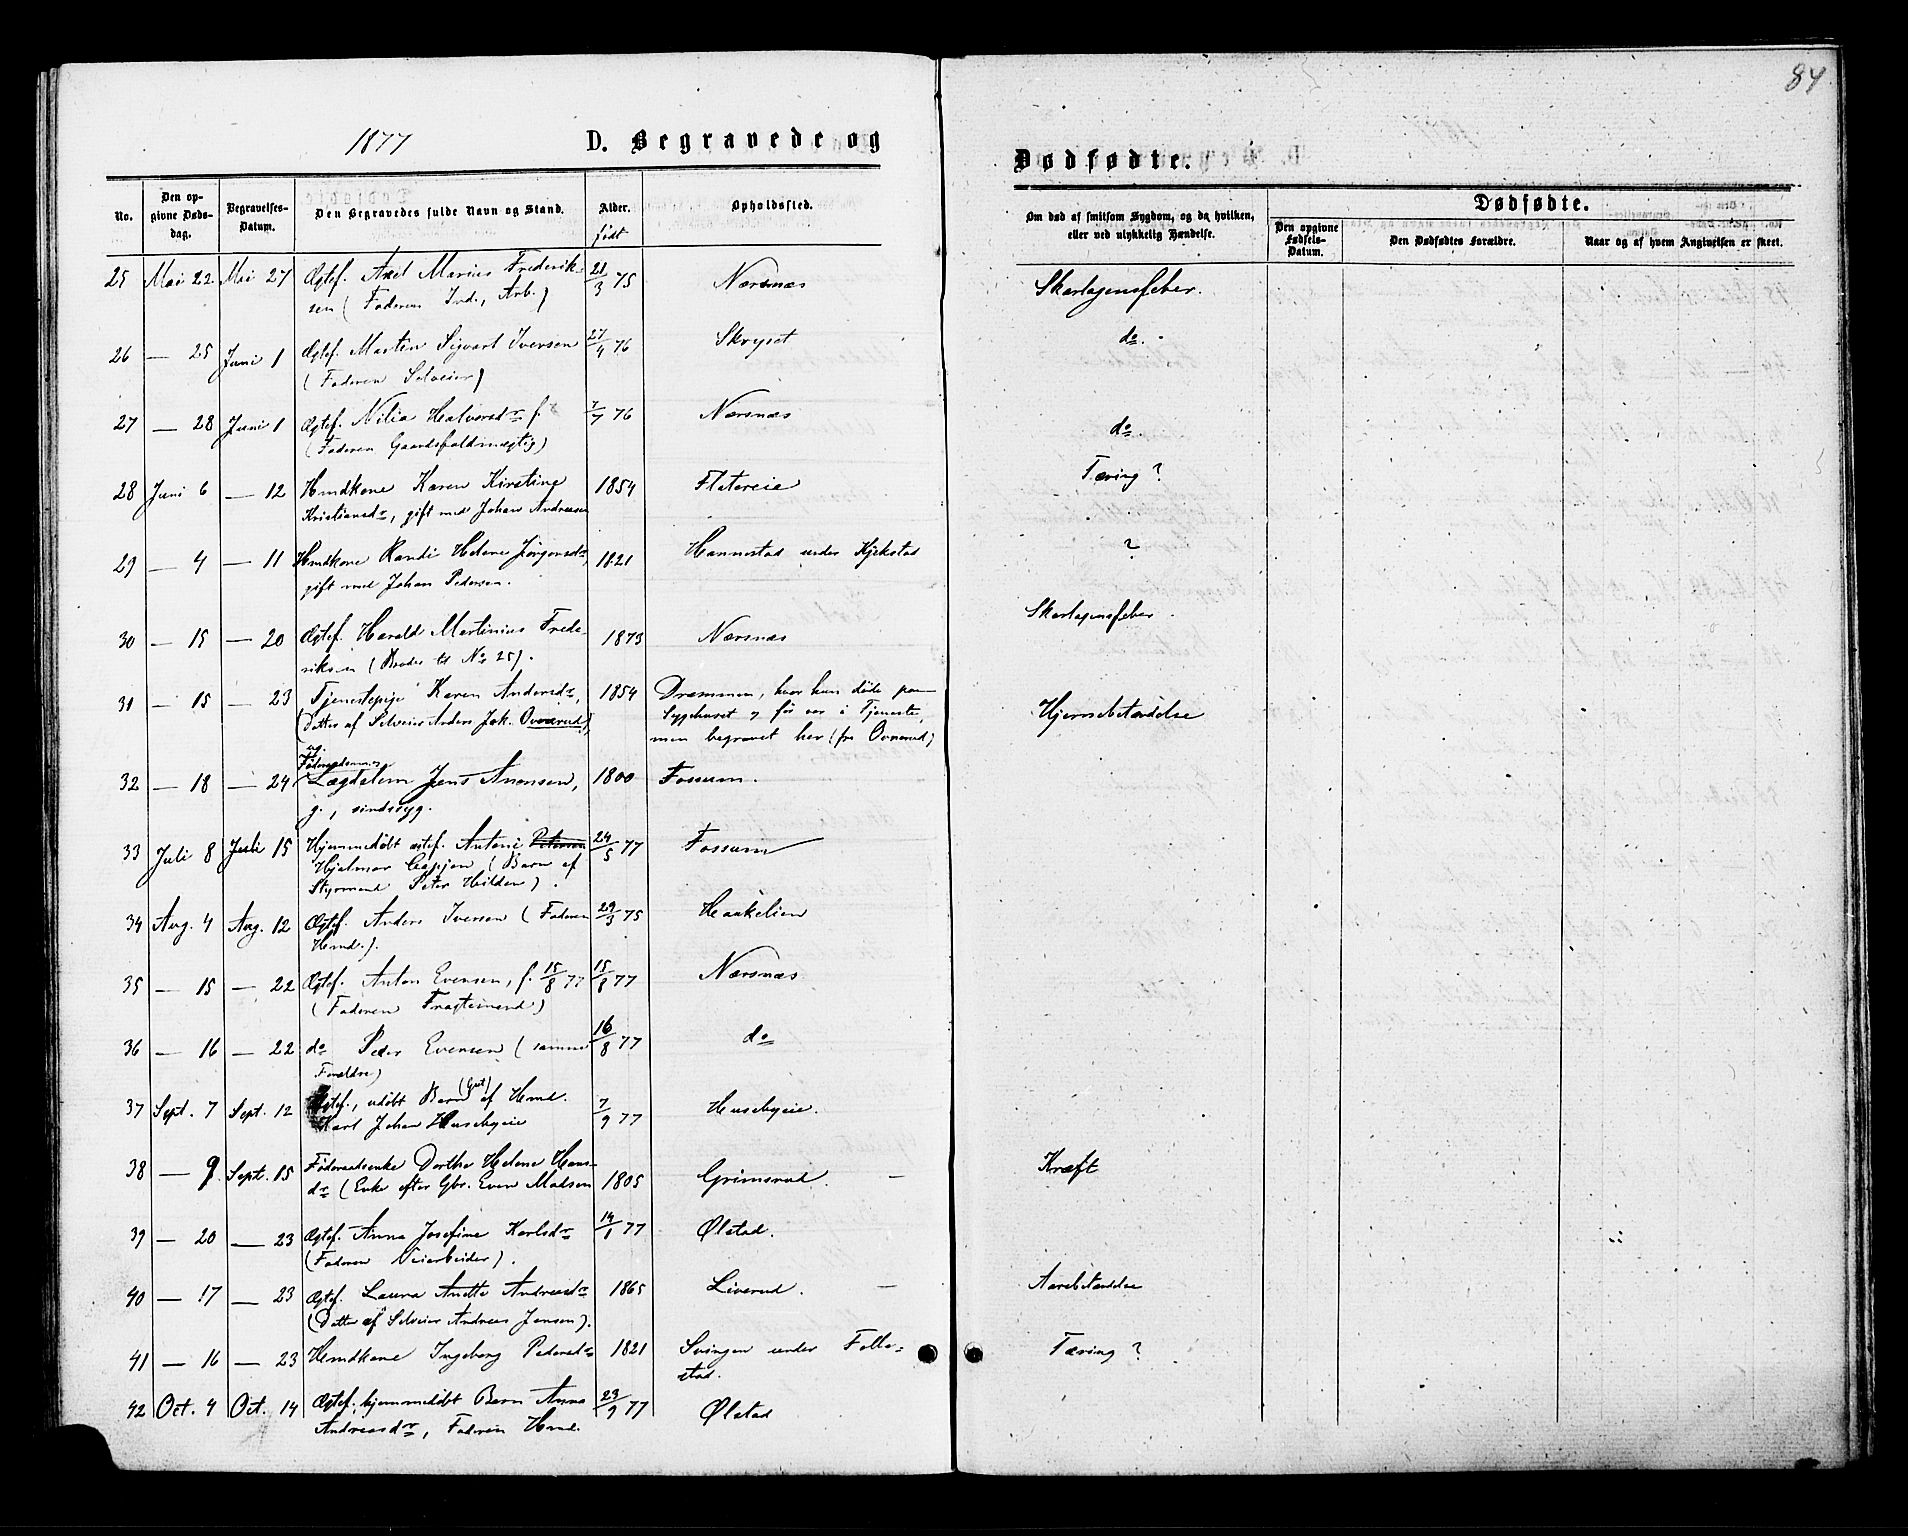 84
1877 D. Begravede og
Dødfødte.
No.
Den opgivne Døds-
dag.
Begravelses-
Datum.
Den Begravedes fulde Navn og Stand.
Alder.
født
Opholdssted.
Om død af smitsom Sygdom, og da hvilken,
eller ved ulykkelig Hændelse.
Dødfødte.
Den opgivne
Fødsels-
Datum.
Den Dødfødtes Forældre.
Naar og af hvem Angivelsen er skeet.
25 Mai 22 Mai 27 Ægtef. Axel Marius Frederik- 21/3 75 Nærsnæs Skarlagensfeber.
sen (Faderen Ind., Arb.)
26 — 25 Juni 1 Ægtef. Martin Sigvart Iversen 27/4 76 Skryset do.
(Faderen Selveier)
27 — 28 Juni 1 Ægtef. Nilia Halvorsdr f. 7/7 76 Nærsnæs do.
(Faderen Gaardsfuldmægtig)
28 Juni 6 — 12 Hmdkone Karen Kirstine 1854 Flatereie Tæring?
Kristiansdr, gift med Johan Andreasen
29 — 4 — 11 Hmdkone Randi Helene Jørgensdr, 1821 Hannestad under Kjekstad ?
gift med Johan Pedersen.
30 — 15 — 20 Ægtef. Harald Martinius Frede- 1873 Nærsnæs Skarlagensfeber.
riksen (Broder til No 25).
31 — 15 — 23 Tjenestepige Karen Andersdr, 1854 Drammen, hvor hun døde paa Hjernebetændelse
(Datter af Selveier Anders Jak. Ovnerud), Sygehuset og før var i Tjeneste,
men begravet her (fra Ovnerud)
ug.
32 — 18 — 24 Lægdslem Jens Anonsen, 1800 Fossum.
g., sindssyg.
33 Juli 8 Juli 15 Hjemmedøbt ægtef. Antoni Petersen 24/5 77 Fossum
Hjalmar (Barn af
Styrmand Peter Hilden).
34 Aug. 4 Aug. 12 Ægtef. Anders Iversen (Faderen 29/3 75 Haakelien
Hmd.).
35 — 15 — 22 Ægtef. Anton Evensen, f. 15/8 77 15/8 77 Nærsnæs
(Faderen Fragtemand)
36 — 16 — 22 do Peder Evensen (samme 16/8 77 do
Forældre)
(Gut)
37 Sept. 7 Sept. 12 Ægtef., udøbt Barn af Hmd. 7/9 77 Husebyeie.
Karl Johan Husebyeie
38 — 9 Sept. 15 Føderaadsenke Dorthe Helene Hans- 1805 Grimsrud. — Kræft
dr (Enke efter Gbr. Even Madsen
39 — 20 — 23 Ægtef. Anna Josefine Karlsdr 14/1 77 Ølstad.
(Faderen Veiarbeider).
40 — 17 — 23 Ægtef. Laura Anette Andreasdr 1865 Liverud. — Aarebetændelse
(Datter af Selveier Andreas Jensen).
41 — 16 — 23 Hmdkone Ingeborg Pedersdr 1821 Svingen under Folle- Tæring?
stad.
42 Oct. 4 Oct. 14 Ægtef. hjemmedøbt Barn Anna 23/9 77 Ølstad
Andreasdr, Faderen Hmd.